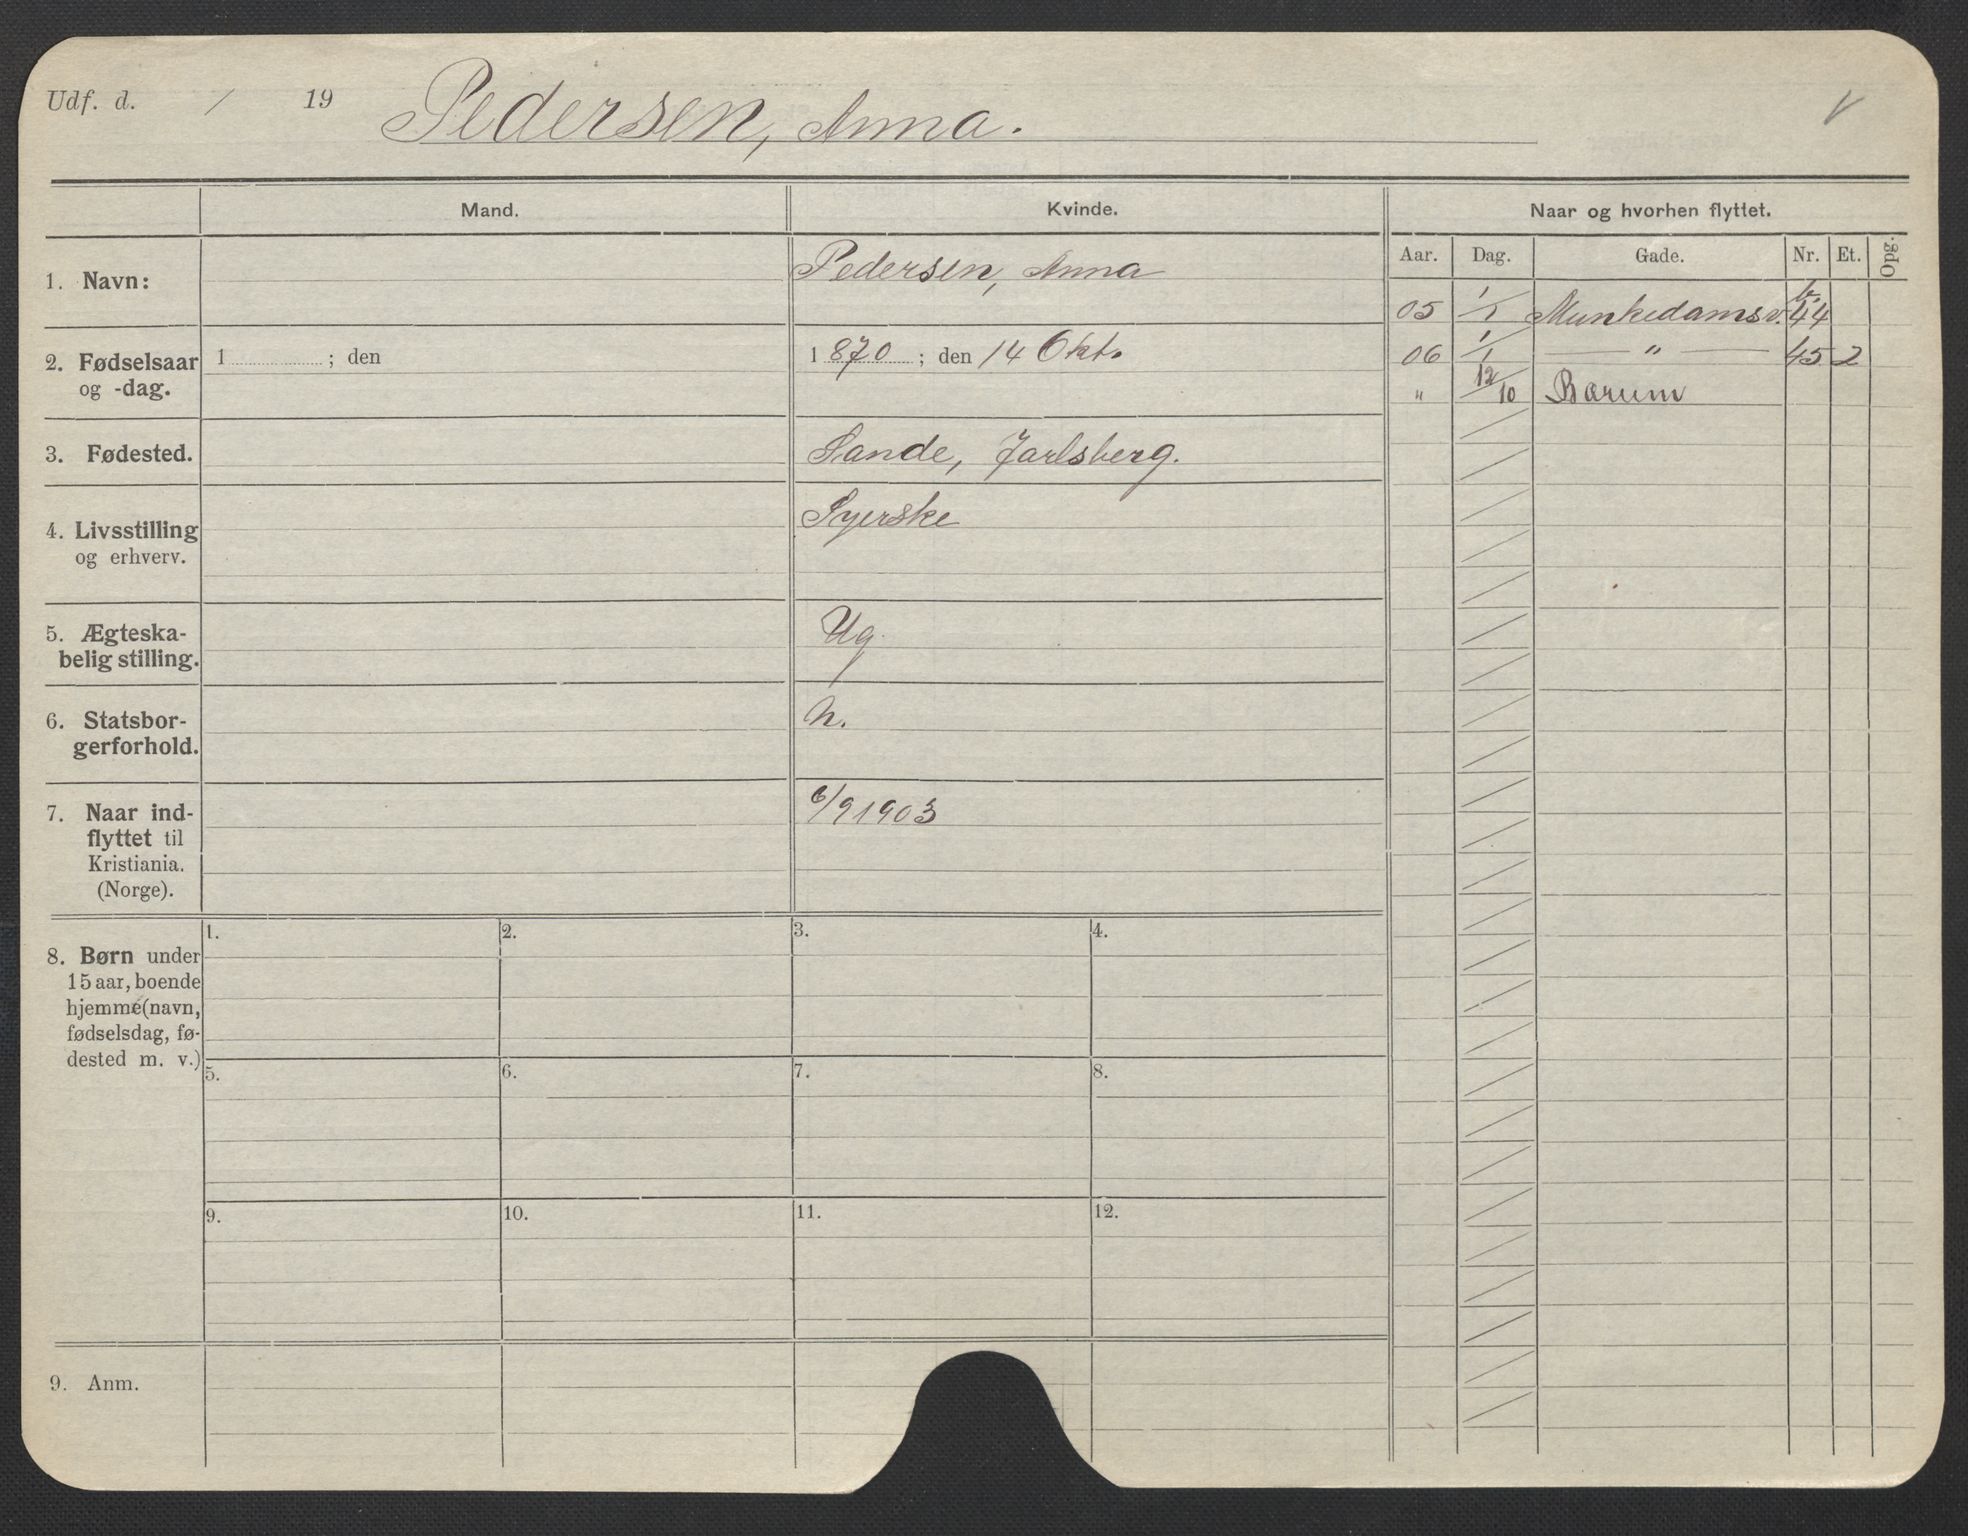 Udf. d. / 19 Pedersen, Anna.
Mand. Kvinde. Naar og hvorhen flyttet.
Aar. Dag. Gade. Nr. Et. Opg.
1. Navn: Pedersen, Anna
05 1/1 Munkedamsv. 44 b.
2. Fødselsaar 1 ; den 1 870 ; den 14 Okt.
og -dag.
06 1/1 — " — 45 2
" 12/10 Bærum
3. Fødested. Sande, Jarlsberg.
4. Livsstilling Syerske
og erhverv.
5. Ægteska- Ug.
belig stilling.
6. Statsbor- n.
gerforhold.
7. Naar ind- 6/9 1903
flyttet til
Kristiania.
(Norge).
1. 2. 3. 4.
8. Børn under
15 aar, boende
hjemme (navn,
fødselsdag, fø-
dested m. v.)
5. 6. 7. 8.
9. 10. 11. 12.
9. Anm.